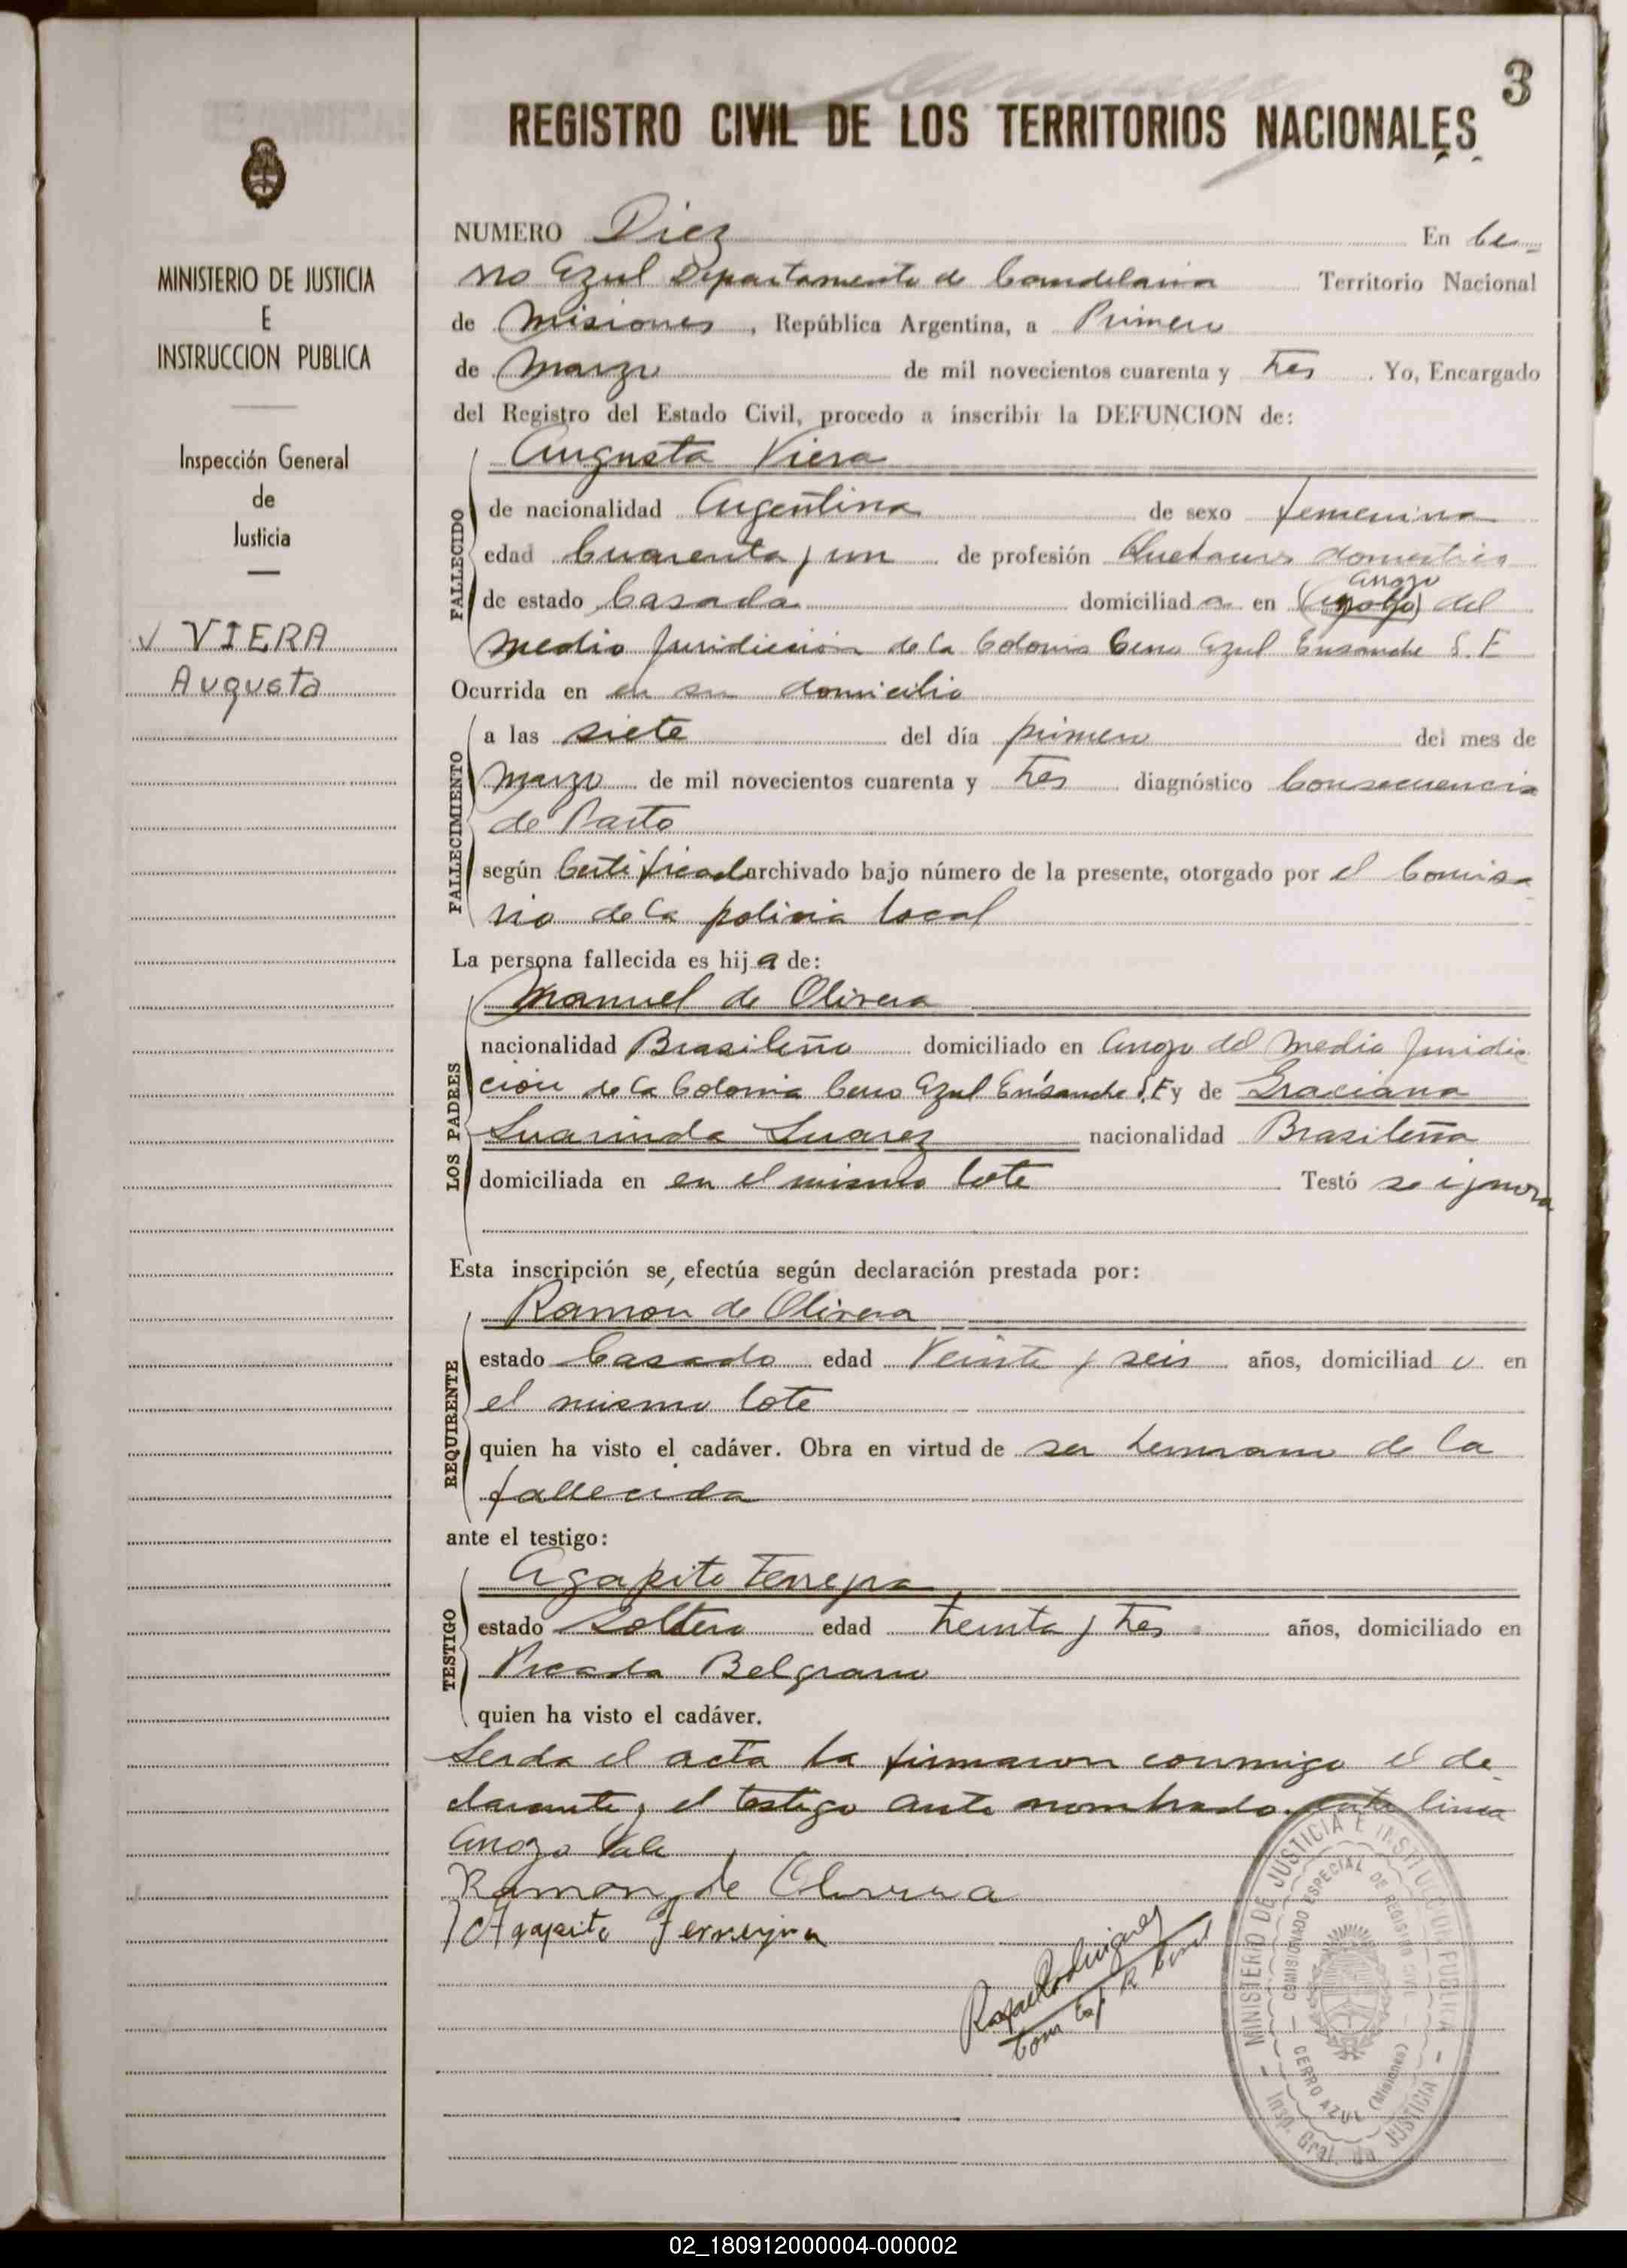 3
REGISTRO CIVIL DE LOS TERRITORIOS NACIONALES
MINISTERIO DE JUSTICIA
E
INSTRUCCION PUBLICA
Inspección General
de
Justicia
V VIERA
Augusta
NUMERO Diez En Ce-
rro Azul Departamento de Candelaria Territorio Nacional
de Misiones, República Argentina, a Primero
de Marzo de mil novecientos cuarenta y tres. Yo, Encargado
del Registro del Estado Civil, procedo a inscribir la DEFUNCION de:
Augusta Viera
FALLECIDO
de nacionalidad Argentina de sexo femenina
edad Cuarenta y un de profesión Quehaceres domestico
arroyo
de estado Casada domiciliada en () del
medio Juridicción de la Colonia Cerro Azul Ensanche S. E
Ocurrida en en su domicilio
FALLECIMIENTO
a las siete del día primero del mes de
Marzo de mil novecientos cuarenta y tres diagnóstico Consecuencia
de Parto
según Certificado archivado bajo número de la presente, otorgado por el Comisa-
rio de la policia local
La persona fallecida es hija de:
LOS PADRES
Manuel de Olivera
nacionalidad Brasileño domiciliado en Arroyo del Medio Juridic
ción de la Colonia Cerro Azul Ensanche S.E y de Graciana
Luarinda Suarez nacionalidad Brasileña
domiciliada en en el mismo lote Testó se ignora
Esta inscripción se efectúa según declaración prestada por:
REQUIRENTE
Ramón de Olivera
estado Casado edad Veinte y seis años, domiciliado en
el mismo lote
quien ha visto el cadáver. Obra en virtud de ser hermano de la
fallecida
ante el testigo:
TESTIGO
Agapito Ferreyra
estado Soltero edad treinta y tres años, domiciliado en
Picada Belgrano
quien ha visto el cadáver.
Leida el acta la firmaron conmigo el de
clarante y el testigo ante nombrado. entre linea
arroyo Vale
Ramon de Oliveira
Agapito Ferreyra
Rafael Rodriguez
Com Esp R Civil
MINISTERIO DE JUSTICIA E INSTRUCCION PUBLICA
COMISIONADO ESPECIAL DE REGISTRO CIVIL
CERRO AZUL (Misiones)
Insp. Gral. de JUSTICIA
02_180912000004-000002